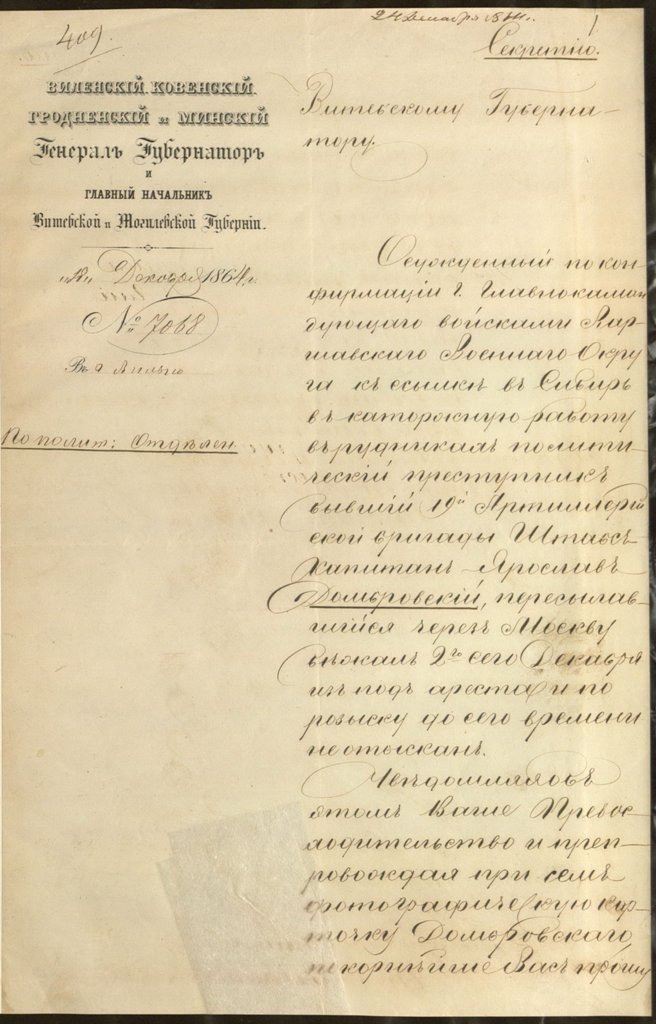 409.
24 Декабря 1864г.
Секретно.
ВИЛЕНСКІЙ, КОВЕНСКІЙ,
ГРОДНЕНСКІЙ и МИНСКІЙ
Генералъ Губернаторъ
и
ГЛАВНЫЙ НАЧАЛЬНИКЪ
Витебской и Могилевской Губерніи.
Декабря 1864 г.
№ 7068
Въ г. Вильно
По полит: Отдѣлен.
Витебскому Губерна-
тору.
Осужденный по кон-
фирмаціи г. Главнокоман
дующаго войсками Вар-
шавскаго Военнаго Окру
га къ ссылкѣ въ Сибирь
въ каторжную работу
въ рудникахъ полити-
ческій преступникъ
бывшій 19й Артиллерій
ской бригады Штабсъ-
Капитанъ Ярославъ
Домбровскій, пересылав-
шійся чрезъ Москву
бѣжалъ 2го сего Декабря
изъ подъ ареста и по
розыску до сего времени
не отысканъ.
Увѣдомляя объ
этомъ Ваше Превос-
ходительство и преп-
ровождая при семъ
фотографическую кар-
точку Домбровскаго,
покорнѣйше Васъ прошу